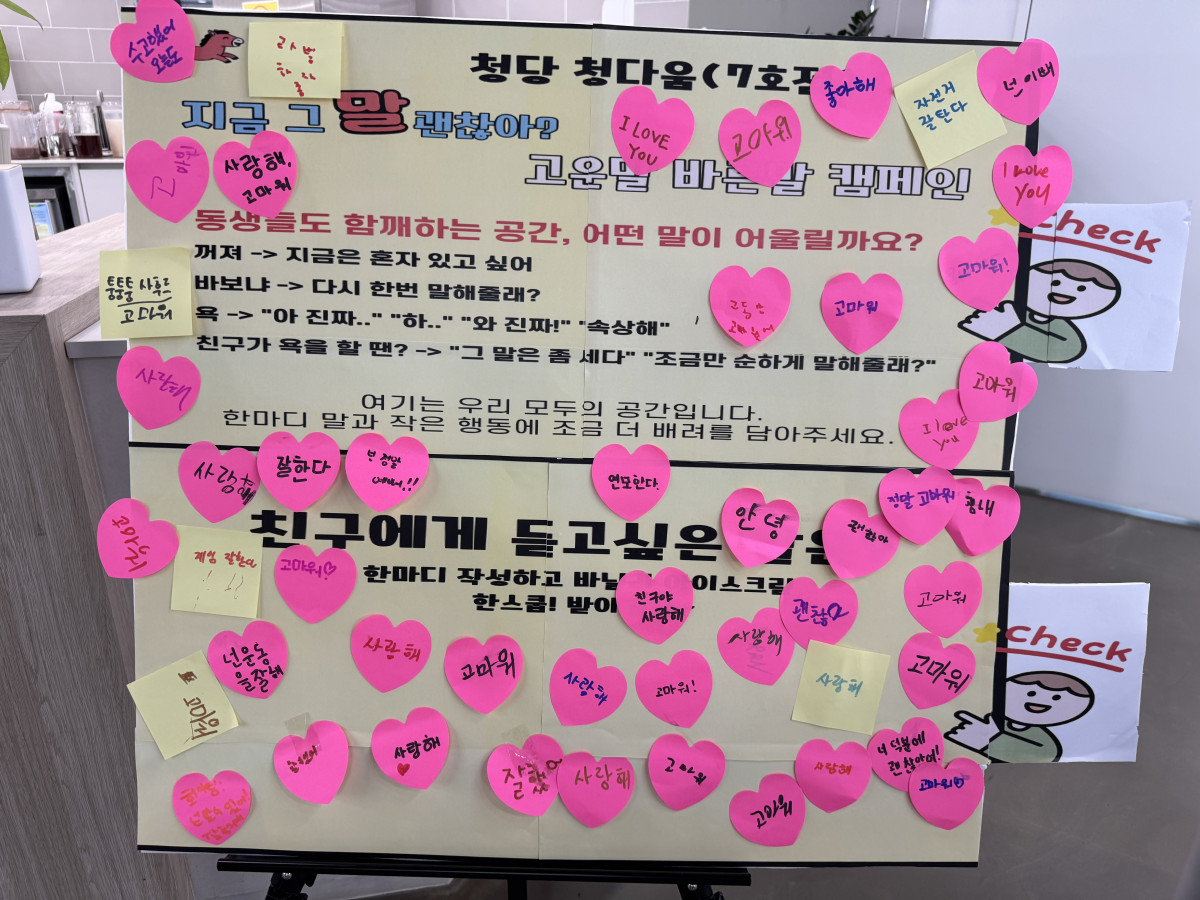 수고했어
오늘도
청당 청다움(7호
좋아해
넌 이뻐
자전거
잘 탄다
지금 그 말 괜찮아?
I LOVE
YOU
고마워
고운말 바른말 캠페인
고마워
사랑해,
고마워
I Love
You
check
동생들도 함깨하는 공간, 어떤 말이 어울릴까요?
꺼져 -> 지금은 혼자 있고 싶어
고마워!
바보냐 -> 다시 한번 말해줄래?
고마워
퉁퉁퉁 사후르
고마워
욕 -> "아 진짜.." "하.." "와 진짜!" "속상해"
친구가 욕을 할 땐? -> "그 말은 좀 세다" "조금만 순하게 말해줄래?"
사랑해
고마워
여기는 우리 모두의 공간입니다.
한마디 말과 작은 행동에 조금 더 배려를 담아주세요.
I love
you
사랑해
잘한다
넌 정말
연모한다.
정말 고마워
힘내
안녕
친구에게 듣고싶은
고마워
게임 잘한다
고마워♡
한마디 작성하고 바닐라 아이스크림
한스쿱! 받아
친구야
사랑해
괜찮아
고마워
check
넌 운동
을 잘해
사랑해
고마워
사랑해
고마워
사랑해
고마워!
사랑해
고마워
사랑해
잘했어
사랑해
고마워
사랑해
너 덕분에
괜찮아여!
고마워♡
고마워